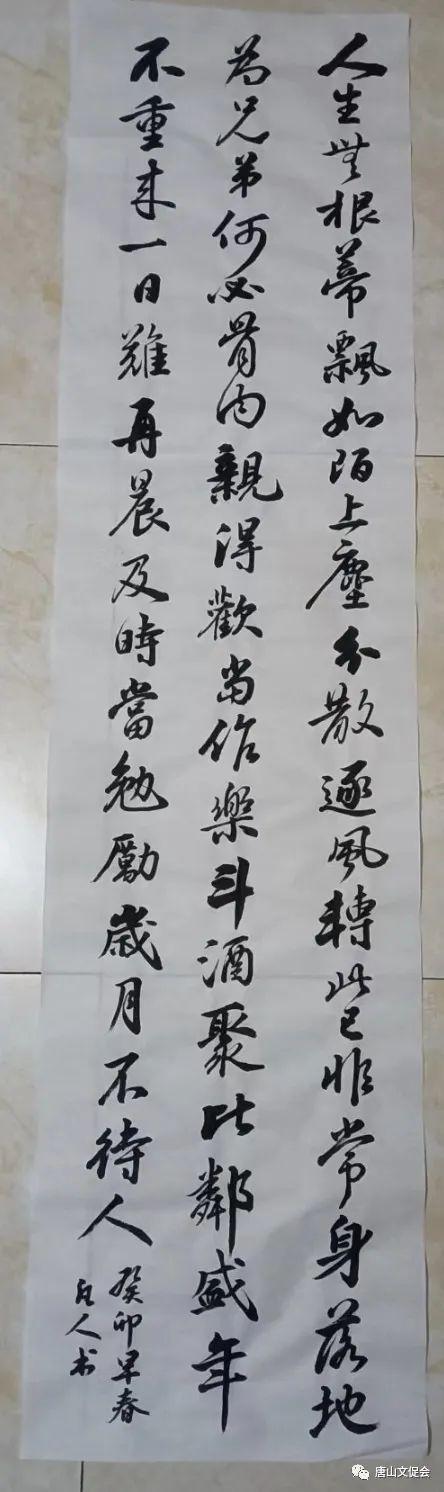 人生無根蒂飄如陌上塵分散逐風轉此已非常身落地
為兄弟何必骨肉親得歡當作樂斗酒聚比鄰盛年
不重来一日難再晨及時當勉勵歲月不待人
癸卯早春
人书
唐山文促会